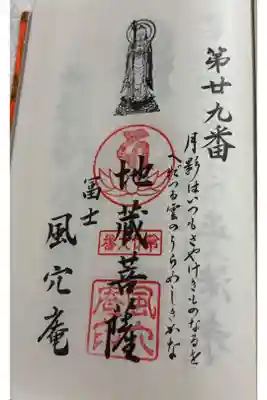 第廿九番
月影はいつもさやけきものなるを
へだつる雲のうらめしきかな
地藏菩薩
冨士
風穴庵
風穴庵印